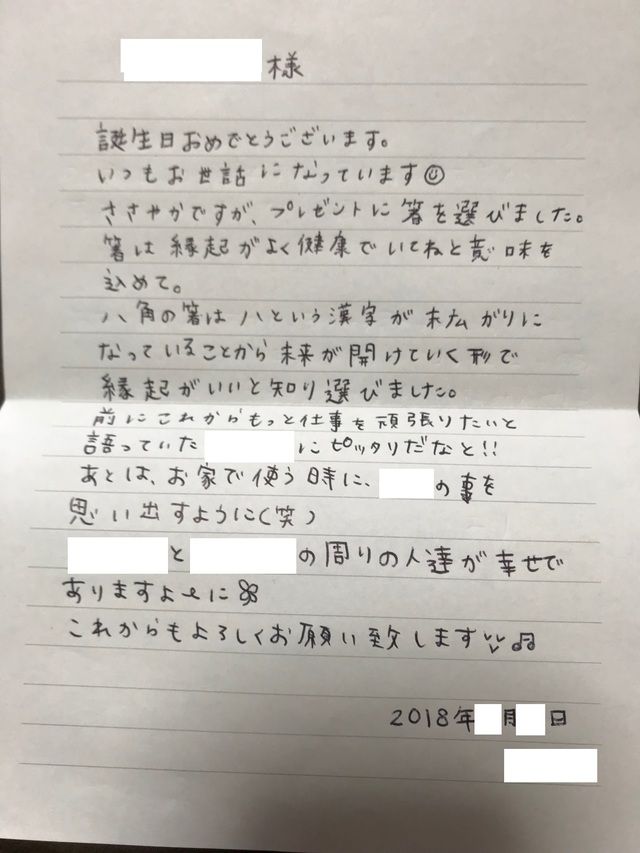 様
誕生日おめでとうございます。
いつもお世話になっています
ささやかですが、プレゼントに箸を選びました。
箸は縁起がよく健康でいてねと意味を
込めて。
八角の箸は八という漢字が末広がりに
なっていることから未来が開けていく形で
縁起がいいと知り選びました。
前にこれからもっと仕事を頑張りたいと
語っていた にピッタリだなと!!
あとは、お家で使う時に、 の事を
思い出すように(笑)
と の周りの人達が幸せで
ありますよーに
これからもよろしくお願い致します♫
2018年 月 日